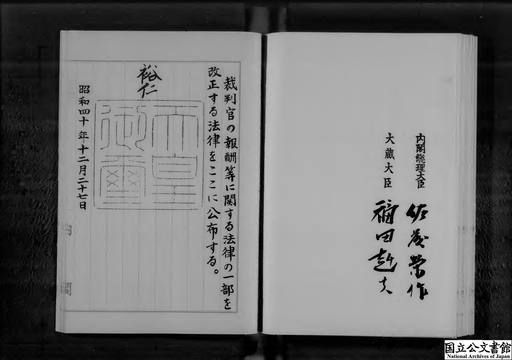 裁判官の報酬等に関する法律の一部を
改正する法律をここに公布する。
裕仁
天皇
御璽
昭和四十年十二月二十七日
内閣総理大臣 佐藤榮作
大蔵大臣 福田赳夫
国立公文書館
National Archives of Japan